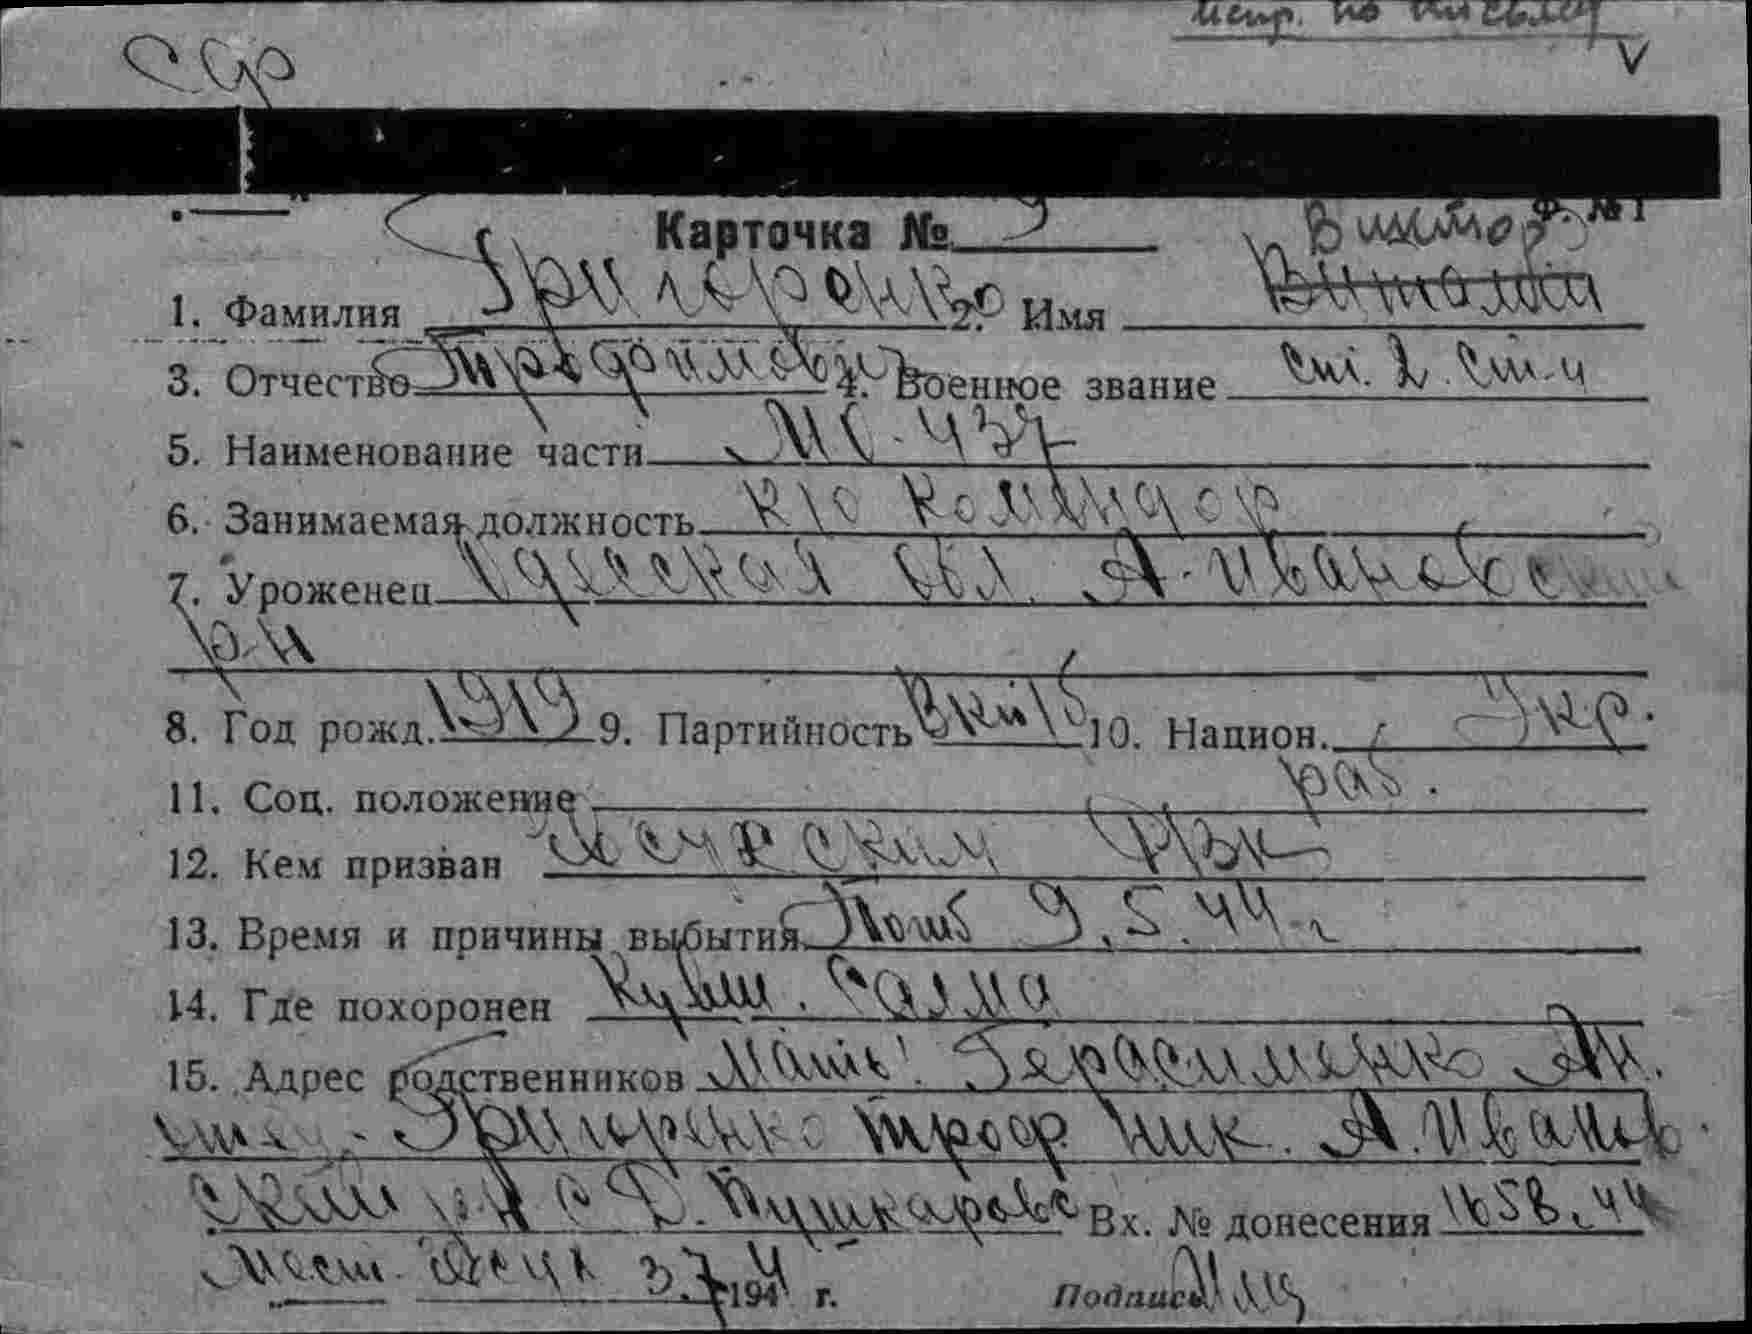 испр. по письму
V
ССР
Ф. №1
Карточка № 9
Виктор
1. Фамилия Григоренко 2. Имя Виталий
3. Отчество Трофимович 4. Военное звание ст. 2. ст-и
5. Наименование части МО-437
6. Занимаемая должность к/о комендор
7. Уроженец Одесская обл. А-Ивановский
р-н
8. Год рожд. 1919 9. Партийность ВКП/б 10. Национ. Укр.
11. Соц. положение раб.
12. Кем призван РВК
13. Время и причины выбытия Погиб 9.5.44 г
14. Где похоронен Кувш. Салма
15. Адрес родственников Мать: Герасименко Ан.
отец - Григоренко Троф. Ник. А. Иванов-
ский р-н с Д. Пушкарово Вх. № донесения 1658.44
3.7 1944 г. Подпись